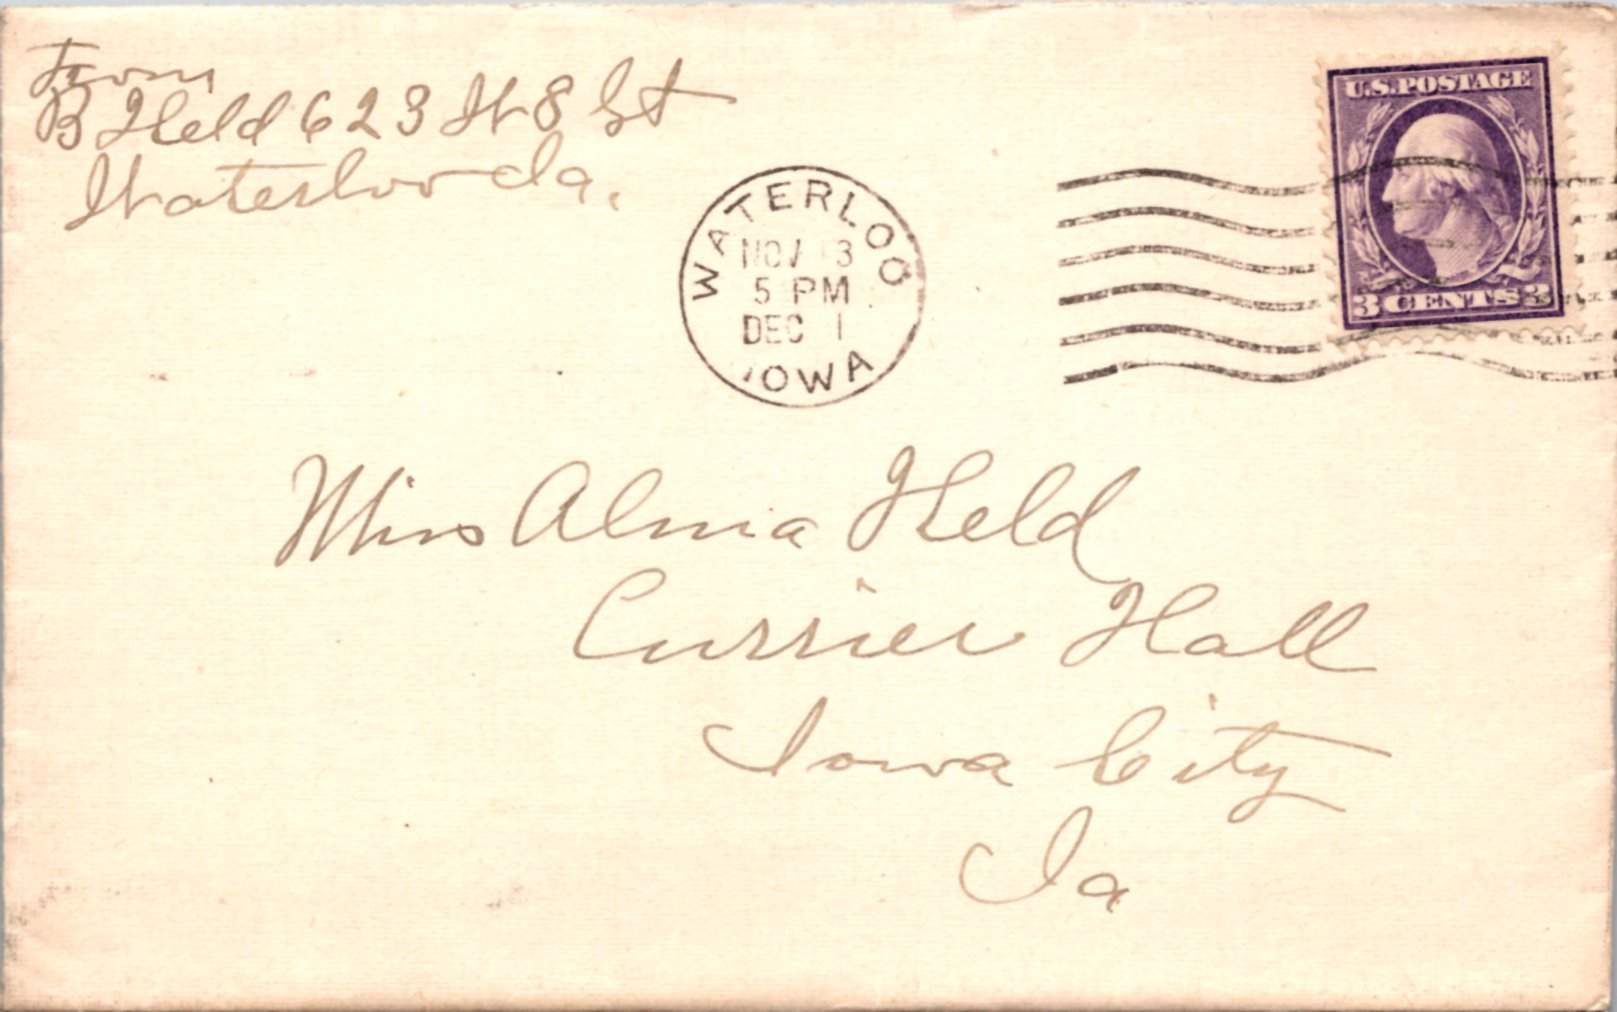 From
B Held 623 W 8 St
Waterloo Ia.
U.S. POSTAGE
3 CENTS 3
WATERLOO
5 PM
DEC 1
IOWA
Miss Alma Held
Currier Hall
Iowa City
Ia